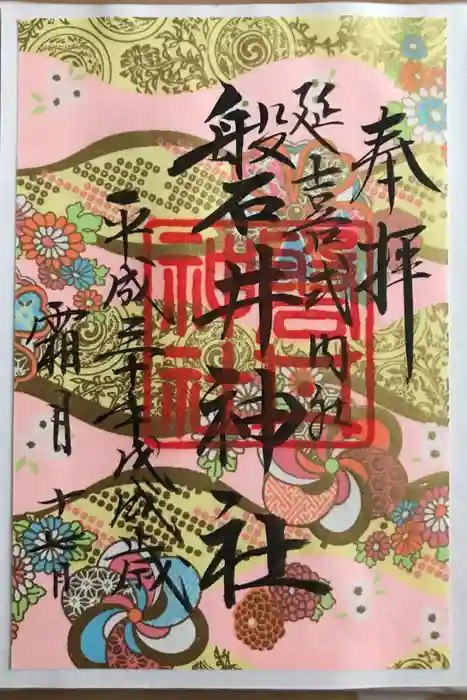 奉拝
延喜式内社
磐井神社
平成三十年戊戌歳
霜月
磐井
神社